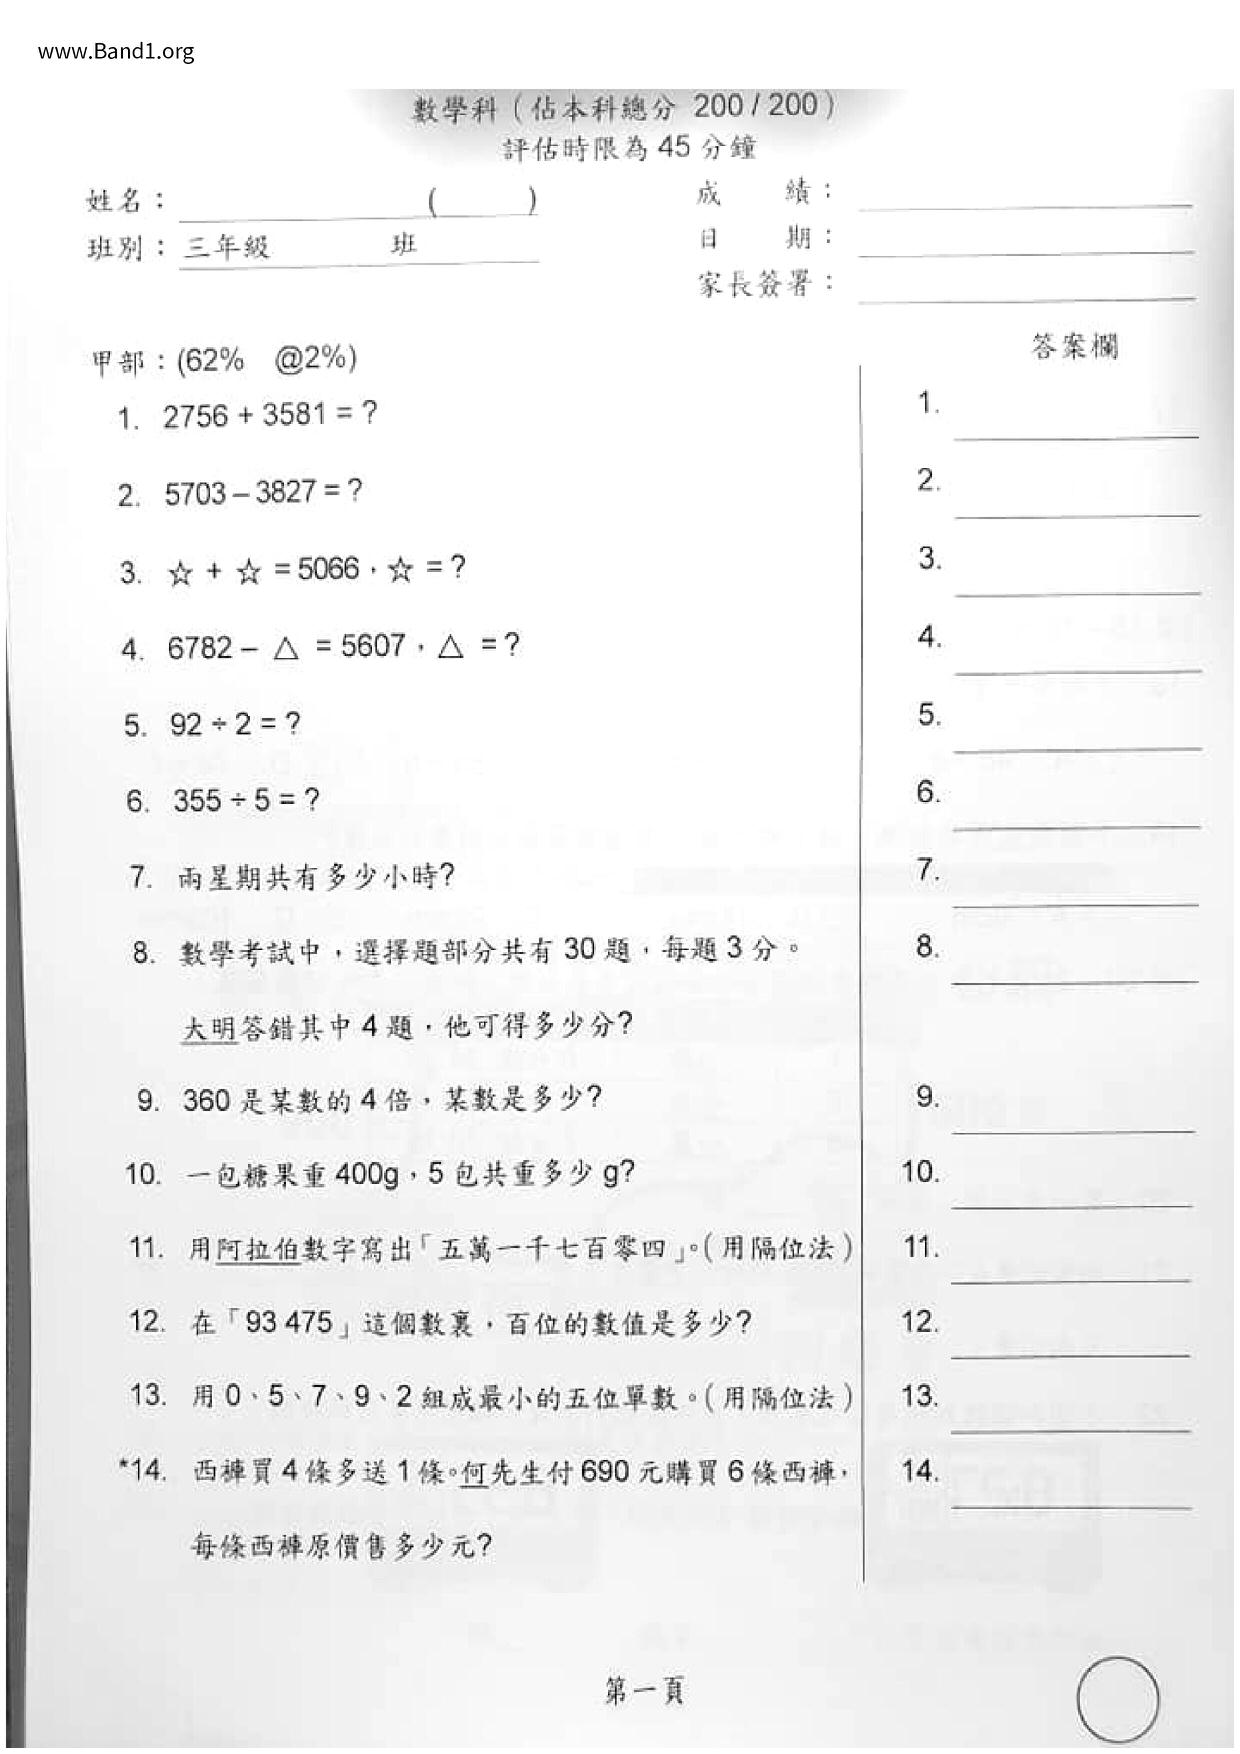 www.Band1.org
數學科（佔本科總分 200 / 200）
評估時限為 45 分鐘
姓名： ( )
成 績：
班別：三年級 班
日 期：
家長簽署：
答案欄
甲部：(62% @2%)
1. 2756 + 3581 = ?
2. 5703 – 3827 = ?
3. ☆ + ☆ = 5066，☆ = ?
4. 6782 – △ = 5607，△ = ?
5. 92 ÷ 2 = ?
6. 355 ÷ 5 = ?
7. 兩星期共有多少小時?
8. 數學考試中，選擇題部分共有 30 題，每題 3 分。
大明答錯其中 4 題，他可得多少分?
9. 360 是某數的 4 倍，某數是多少?
10. 一包糖果重 400g，5 包共重多少 g?
11. 用阿拉伯數字寫出「五萬一千七百零四」。（用隔位法）
12. 在「93 475」這個數裏，百位的數值是多少?
13. 用 0、5、7、9、2 組成最小的五位單數。（用隔位法）
*14. 西褲買 4 條多送 1 條。何先生付 690 元購買 6 條西褲，
每條西褲原價售多少元?
1.
2.
3.
4.
5.
6.
7.
8.
9.
10.
11.
12.
13.
14.
第一頁